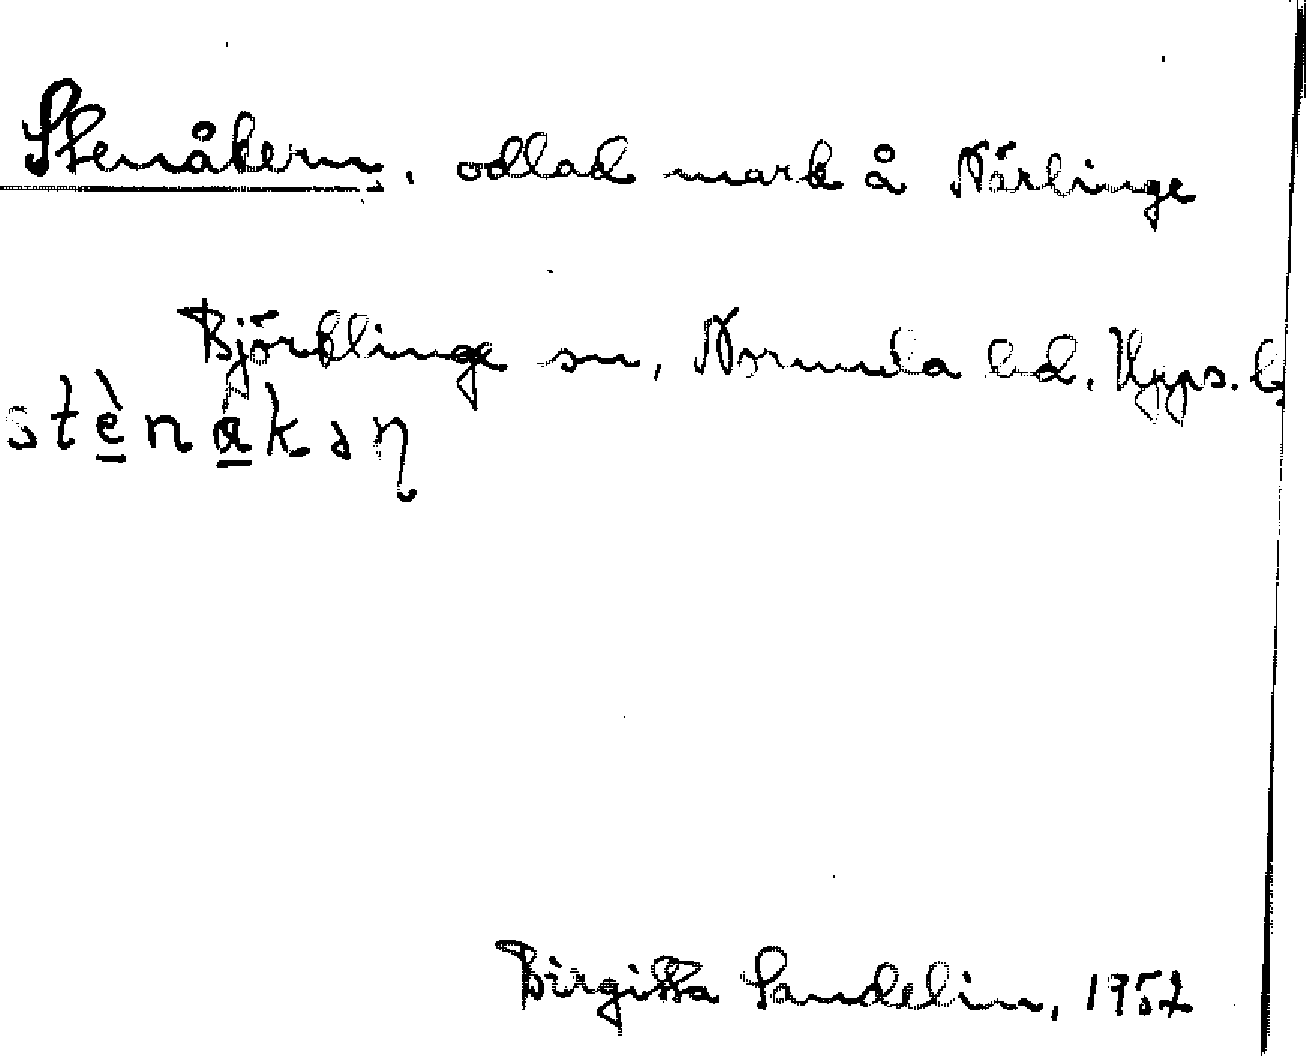 Stenåkern, odlad mark å Närlinge
Björklinge sn, Norunda hd. Upps. l
stènåkəɳ
Birgitta Sandelin, 1952